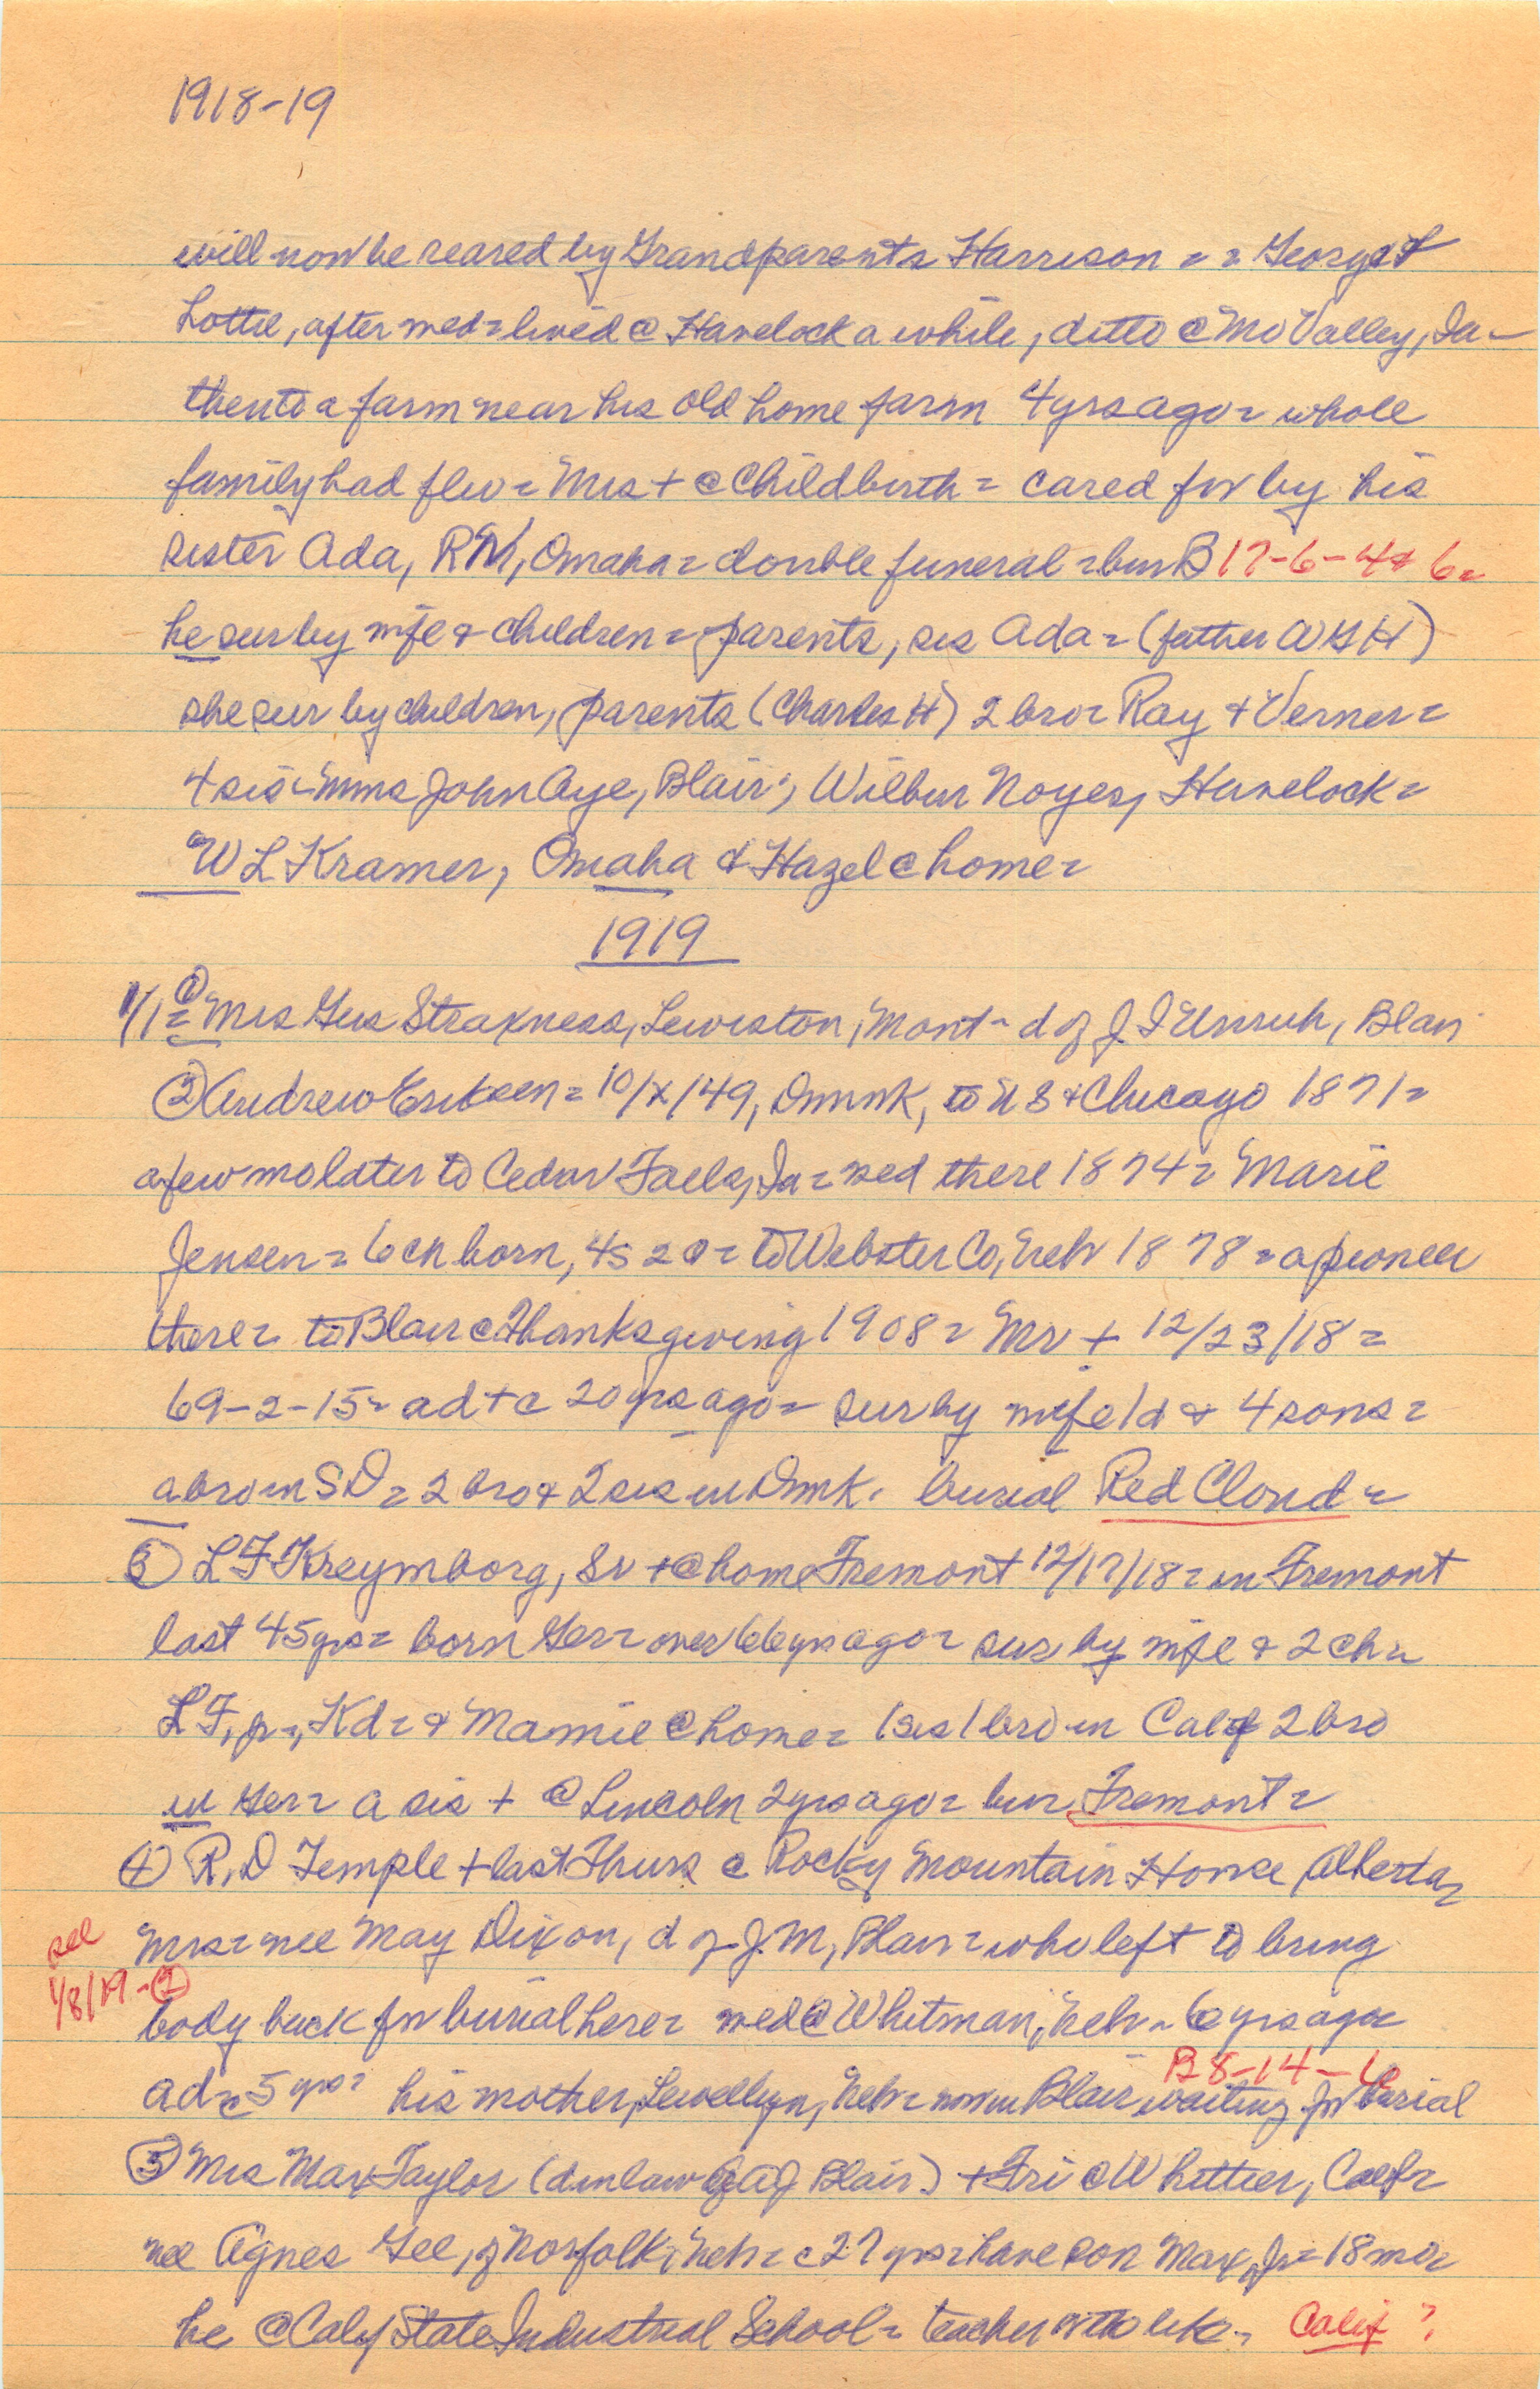 1918-19
will now be reared by Grandparents Harrison = = George &
Lottie, after wed = lived @ Havelock a while, ditto @ Mo Valley, Ia -
then to a farm near his old home farm 4 yrs ago = whole
family had flu = Mrs + @ Childbirth = cared for by his
sister Ada, RN, Omaha = double funeral = bur B 17-6-4 & 6 =
he sur by wife & children = parents, sis Ada = (father W G H)
she sur by children, parents (Charles H) 2 bro = Ray & Verner =
4 sis = Mms John Aye, Blair; Wilbur Noyes, Havelock =
W L Kramer, Omaha & Hazel @ home =
1919
1/1 = ① Mrs Gus Straxness, Lewiston, Mont - d of J I Unruh, Blair
② Andrew Eriksen = 10/x/49, Dnmk, to U S & Chicago 1871 =
a few mo later to Cedar Falls, Ia = wed there 1874 = Marie
Jensen = 6 ch born, 4s 2d = to Webster Co, Neb 1878 = a pioneer
there = to Blair @ Thanksgiving 1908 = Mr + 12/23/18 =
69-2-15 = a d + c 20 yrs ago = sur by wife 1d & 4 sons =
a bro in SD = 2 bro & 2 sis in Dmk. burial Red Cloud =
③ L F Kreymborg, Sr + @ home Fremont 12/17/18 = in Fremont
last 45 yrs = born Ger = over 66 yrs ago = sur by wife & 2 ch =
L F, jr =, Kd = & Mamie @ home = 1 sis 1 bro in Calif 2 bro
in Ger = a sis + @ Lincoln 2 yrs ago = bur Fremont =
④ R. D Temple + last Thurs @ Rocky Mountain House Alberta =
Mrs = nee May Dixon, d of J. M, Blair = who left to bring
see
1/8/19 - ②
body back for burial here = wed @ Whitman, Neb - 6 yrs ago =
B 8-14-6
a d c 5 yrs = his mother, Lewellyn, Neb = now in Blair waiting for burial
⑤ Mrs Max Taylor (d in law of A J Blair) + Fri @ Whittier, Calif =
nee Agnes Gee, of Norfolk, Neb = c 27 yrs = have son Max, Jr = 18 mo =
he @ Calif State Industrial School = teacher Calif ?